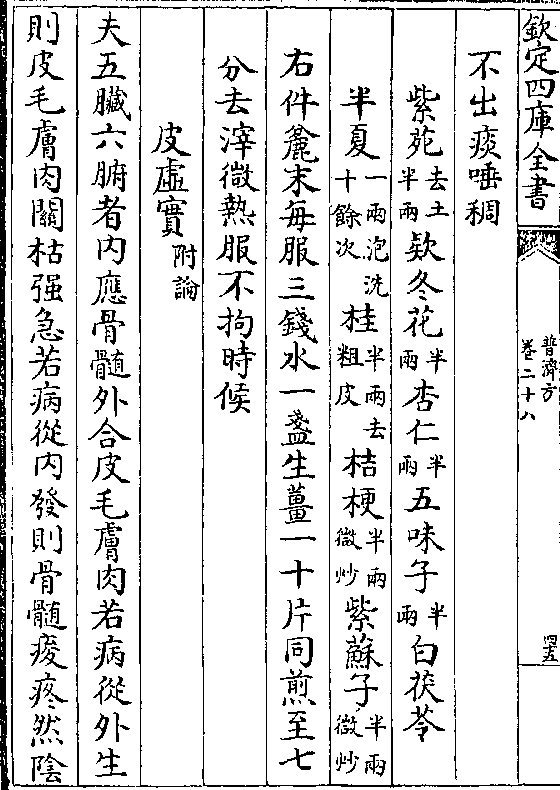 欽定四庫全書
普濟方
卷二十八
四五
不出痰唾稠
紫苑去土半兩欵冬花半兩杏仁半兩五味子半兩白茯苓
半夏一兩泡洗十餘次桂半兩去粗皮桔梗半兩微炒紫蘇子半兩微炒
右件麄末每服三錢水一盞生薑一十片同煎至七
分去滓微熱服不拘時候
皮虛實附論
夫五臟六腑者内應骨髓外合皮毛膚肉若病從外生
則皮毛膚肉關枯强急若病從内發則骨髓痠疼然陰